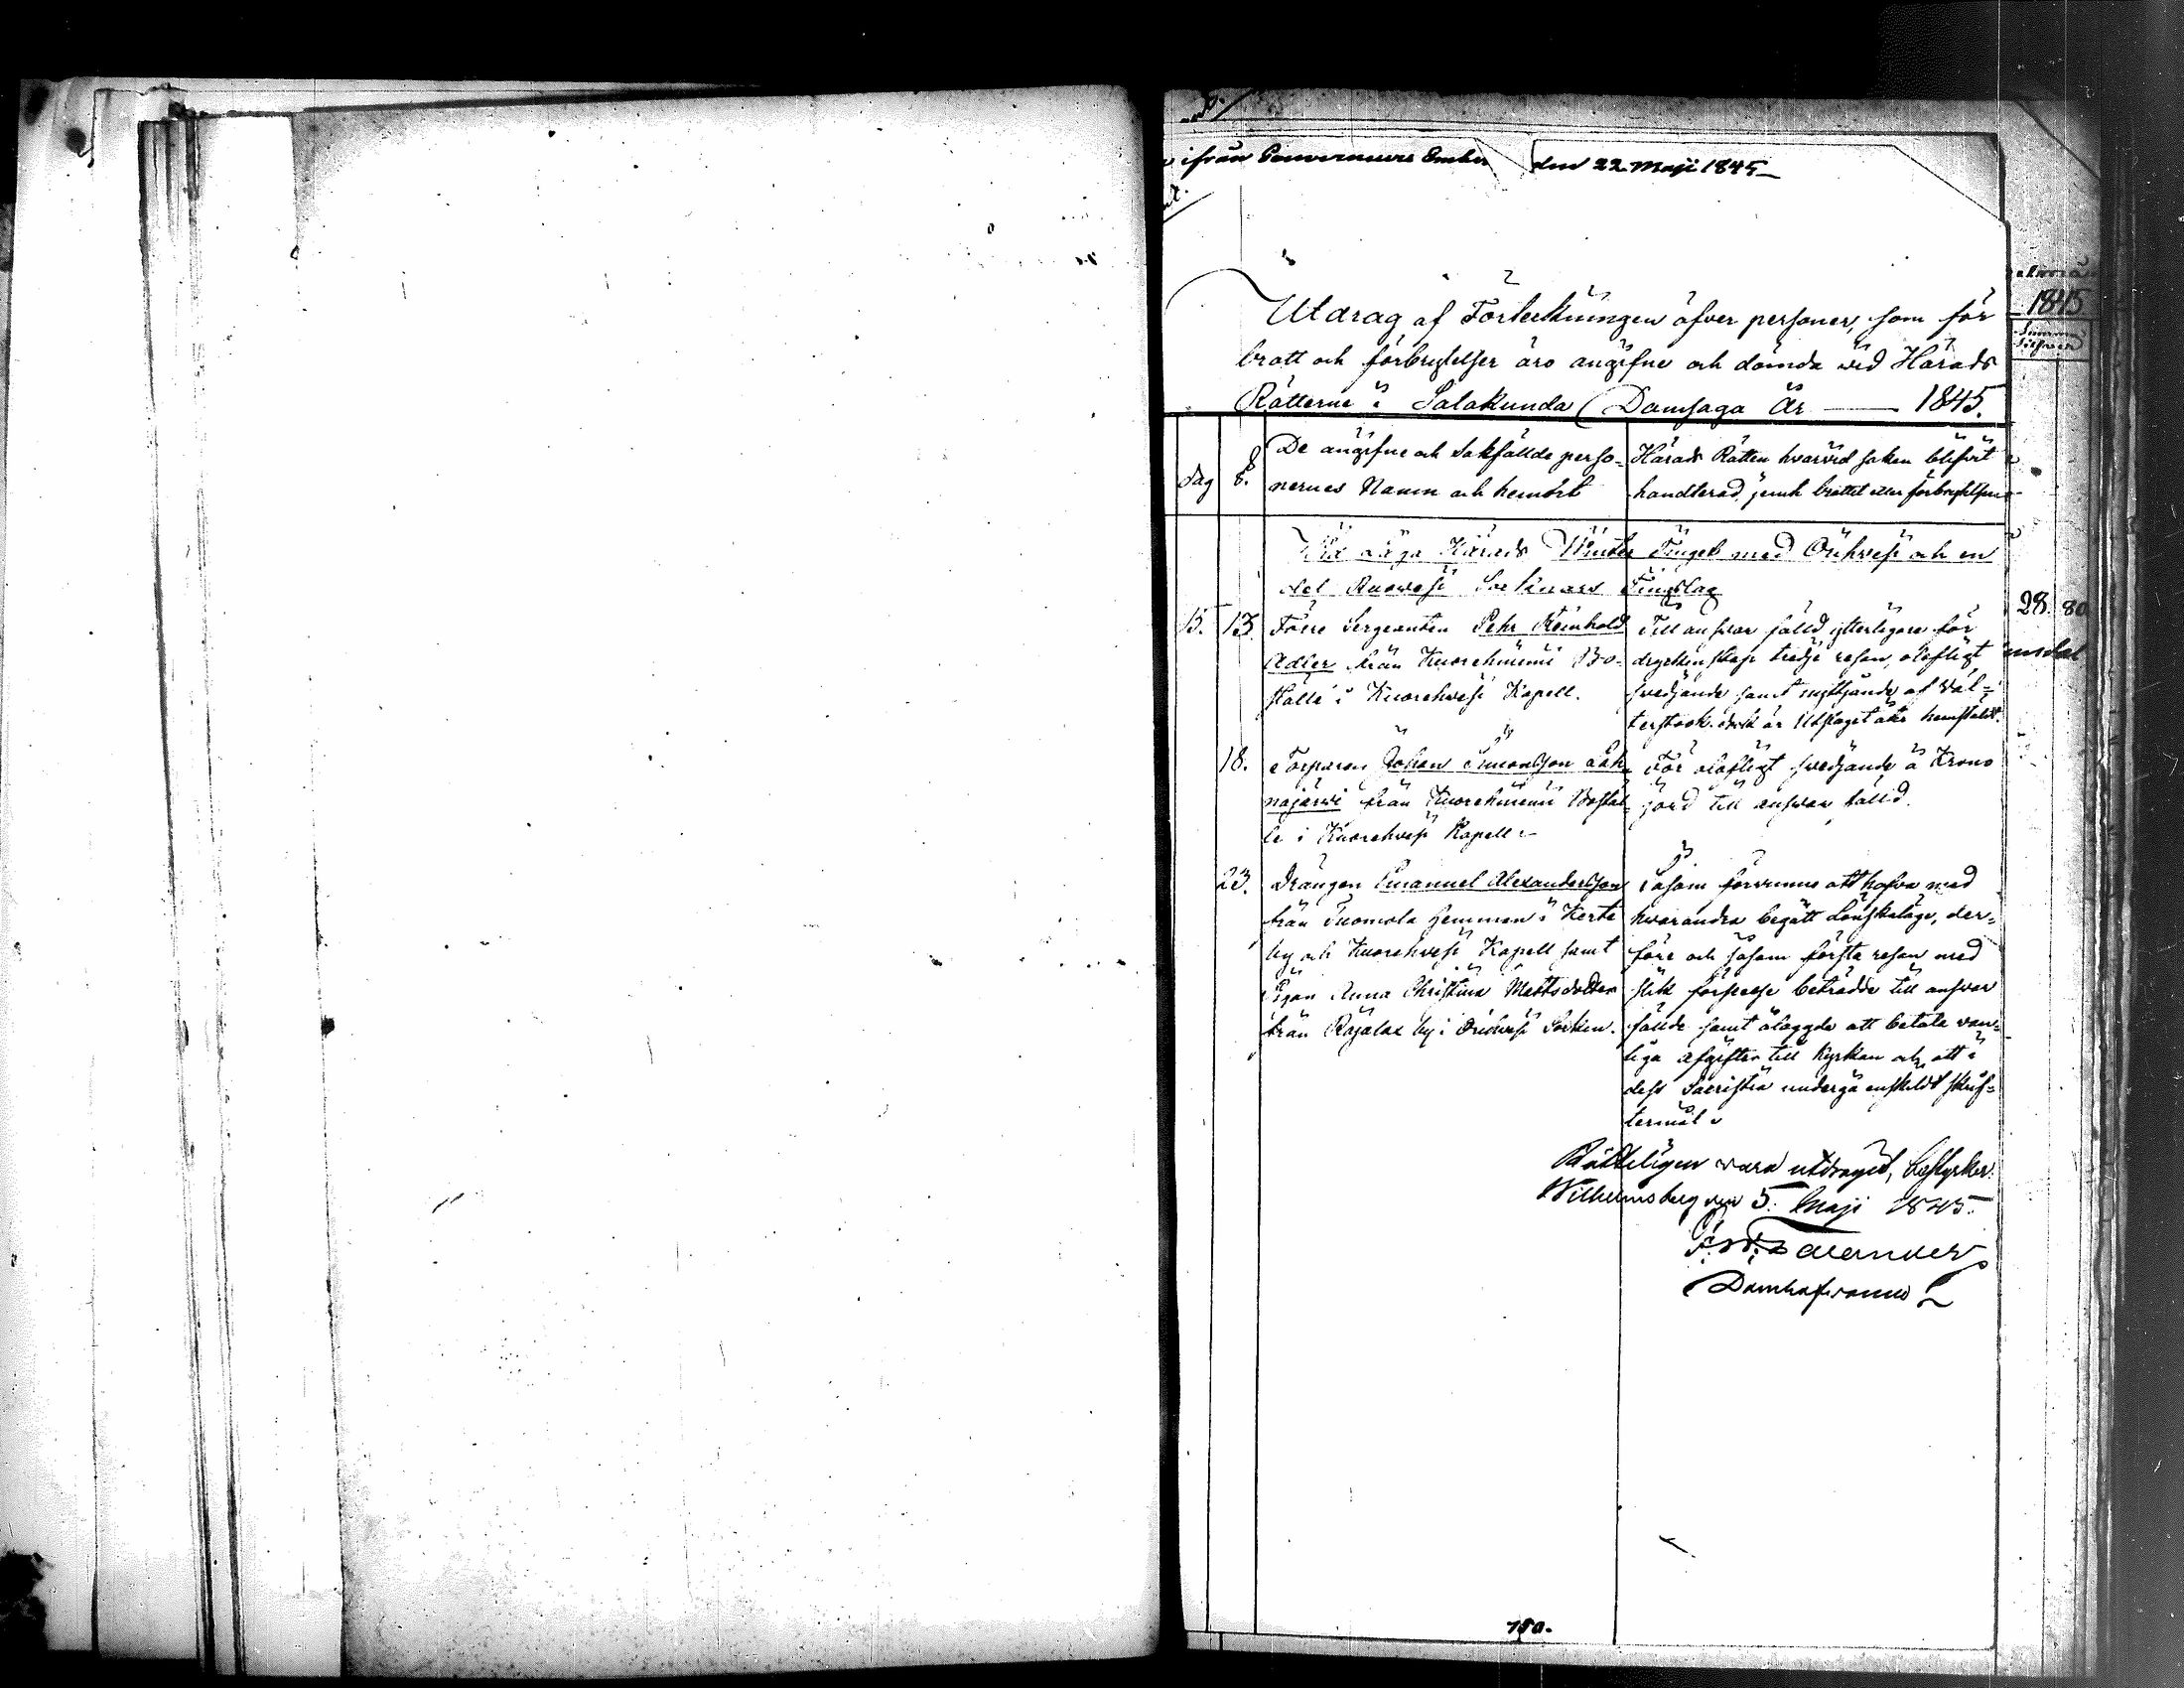 ifrån Gouverneurs Embe den 22 Maji 1845
Utdrag af Förteckningen öfver personer, som för
brott och förbrytelser äro angifne och dömda vid Härads
Rätterne i Satakunda Domsaga År — 1845.
dag
§.
De angifne och sakfällde perso-
nernes Namn och hemort
Härads Rätten hvarvid saken blifvit
handterad, jemte brottet eller förbrytelsen
Härads Winter Tinget med Orihvesi och en
del Ruovesi Socknars Tingslag
15. 13. Förre Sergeanten Pehr Reinhold
Adler från Kuorehniemi Bo-
ställe i Kuorehvesi Kapell.
Till ansvar fälld ytterligare för
dryckenskap tredje resan, olofligt
svedjande samt nyttjande af
är Utslaget hemstäldt.
18. Torparen Johan Simonsson
najärvi från Kuorehniemi Bostäl-
le i Kuorehvesi Kapell
För olofligt svedjande å Krono
jord till ansvar fälld.
23. Drängen Emanuel Alexandersson
från Tuomola hemman i Kerte
by och Kuorehvesi Kapell samt
Pigan Anna Christina Mattsdotter
från Rajalax by i Orihvesi Socken.
Såsom förvunne att hafva med
hvarandra begått Lönskaläge, der-
före och såsom första resan med
slik förseelse beträdde till ansvar
fällde samt ålaggde att betala van-
liga afgifter till Kyrkan och att i
dess Sacristia undergå enskildt skrif-
termål
Rätteligen vara utdraget, bestyrker.
Wilhelmsberg den 5. Maji 1845.
Domhafvande
1845
28. 80
180.